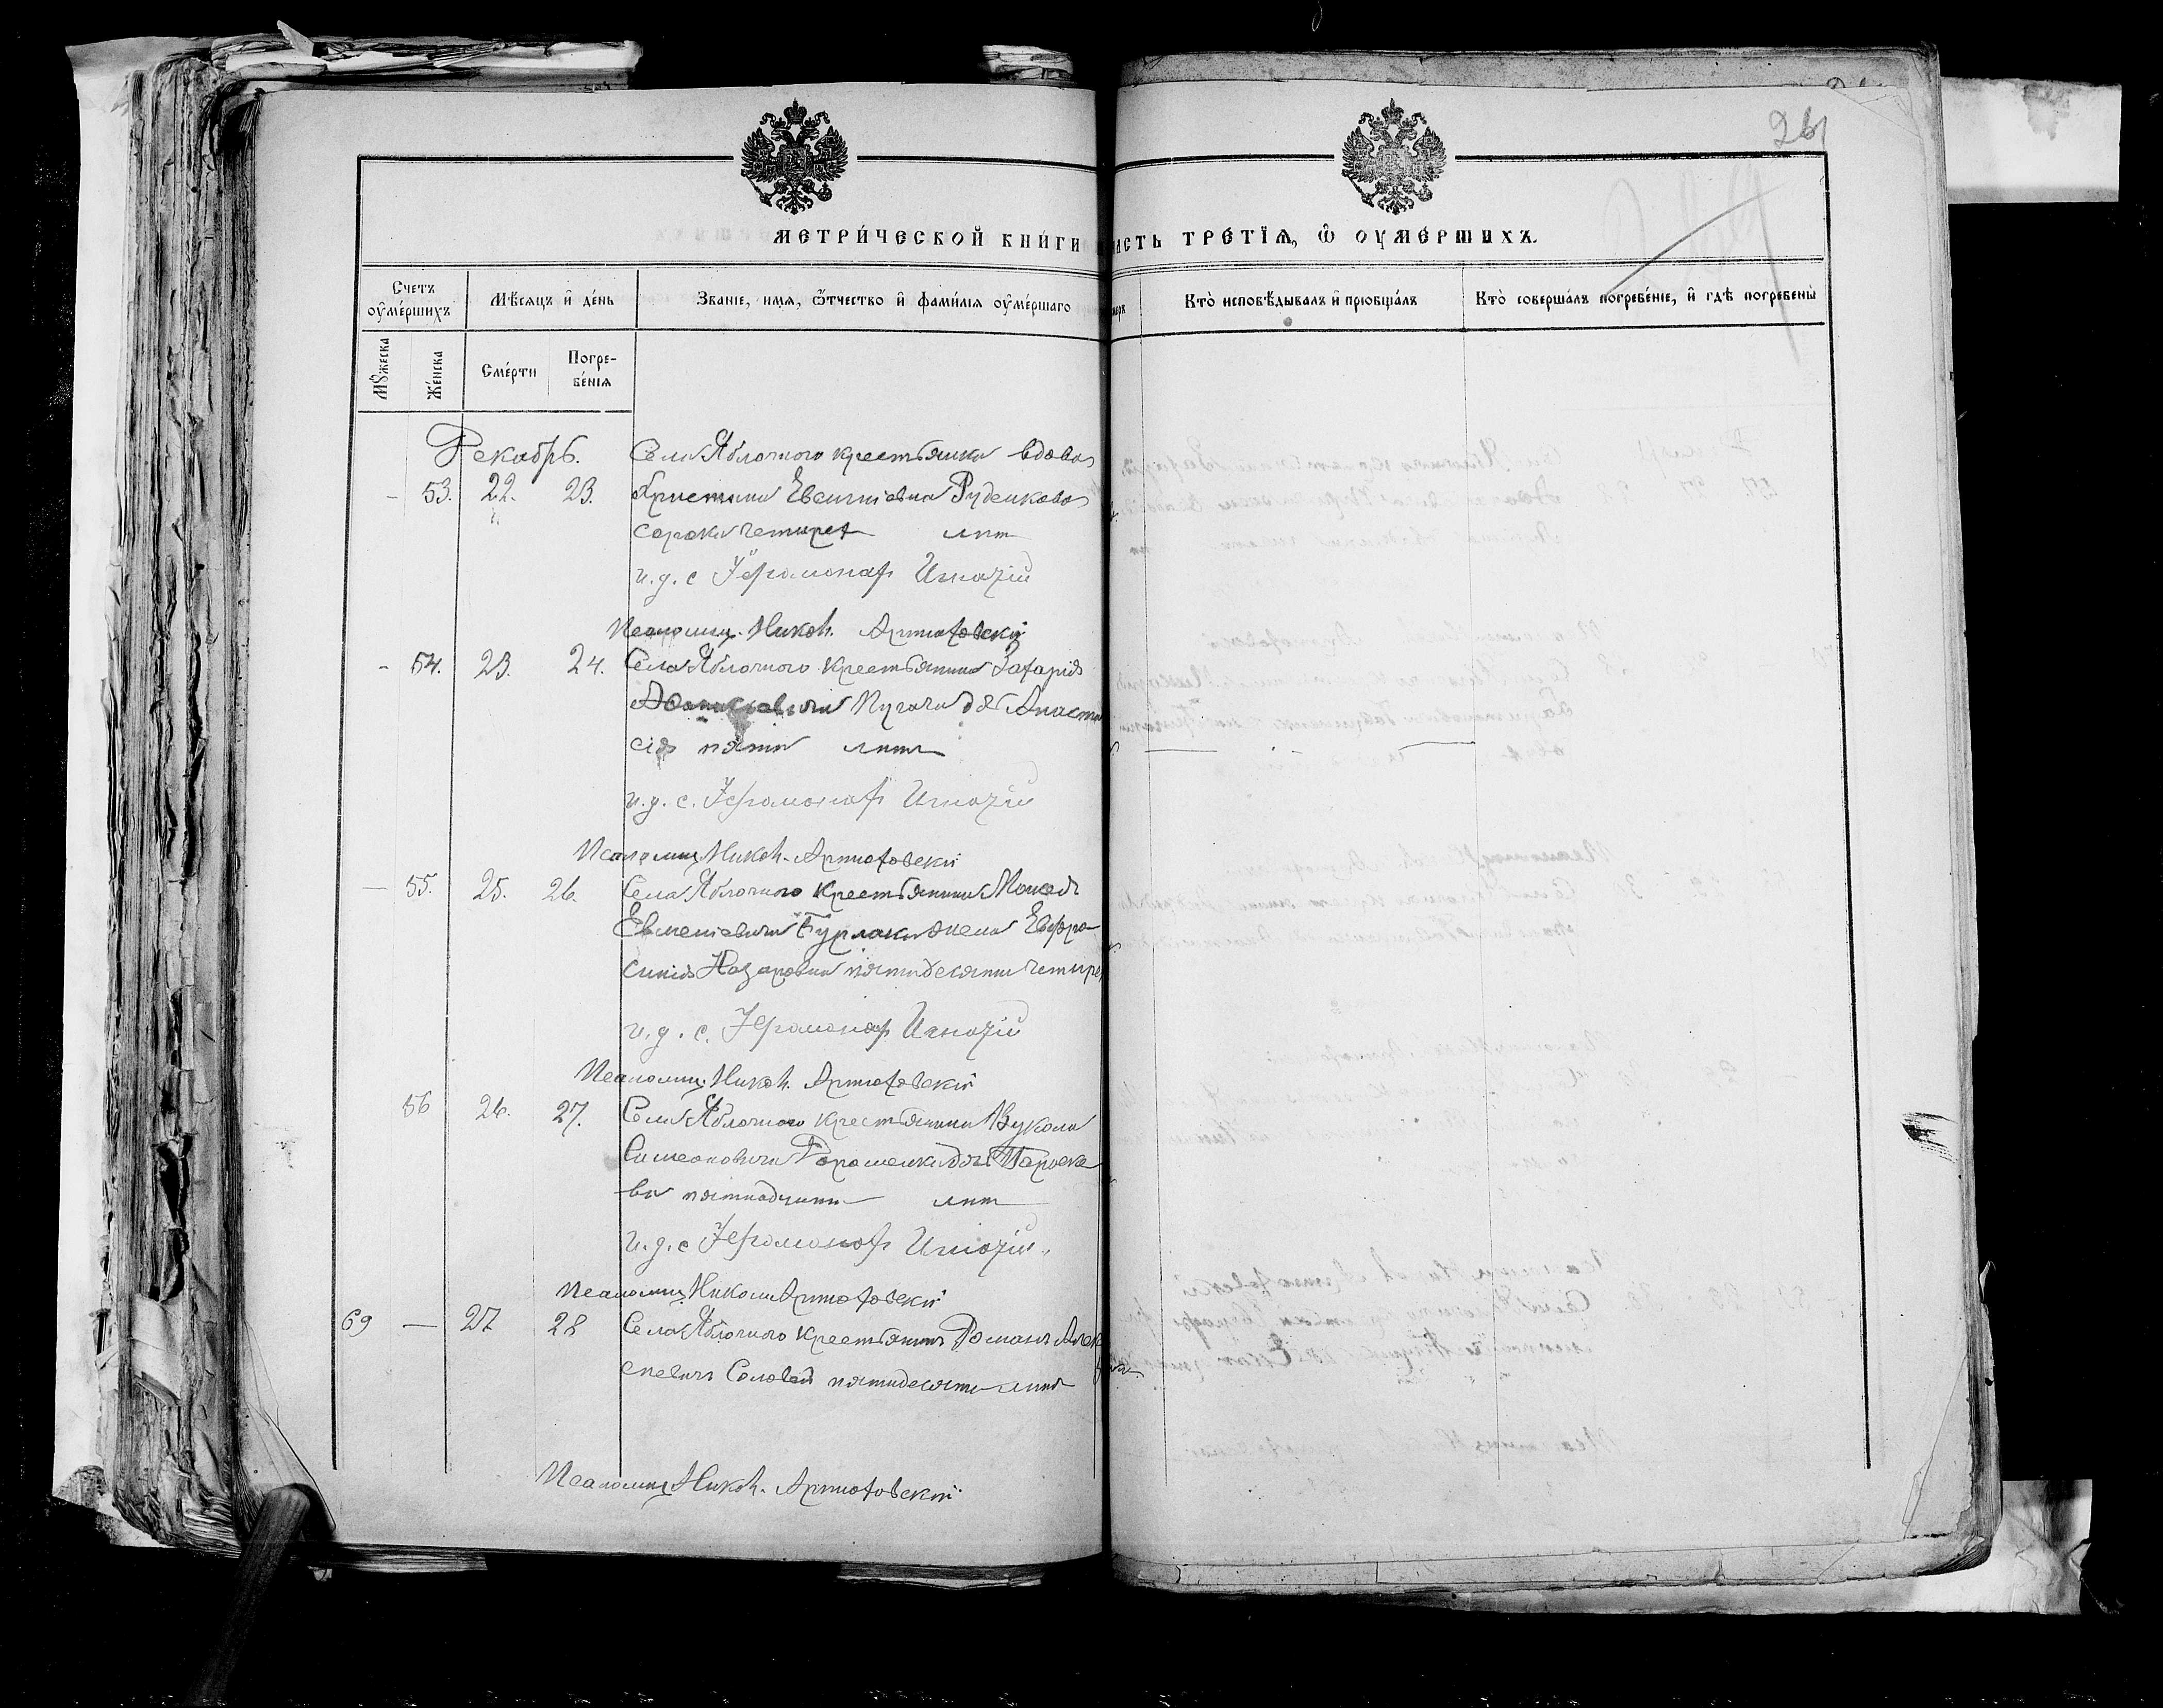 261
МЕТРИ́ЧЕСКОЙ КНИ́ГИ ЧАСТЬ ТРЕ́ТЇЯ, Ѡ҆ ОУ҆МЕ́РШИХЪ.
Счетъ оу҆ме́ршихъ
Мѣ́сяцъ и҆ де́нь
Зва́нїе, и҆мя, ѻ҆́тчество и҆ фами́лїя оу҆ме́ршаго
Кто̀ и҆сповѣ́дывалъ и҆ прїобща́лъ
Кто̀ соверша́лъ погребе́нїе, и҆ гдѣ̀ погребены̀
Мꙋ́жеска
Же́нска
Сме́рти
Погре-
бе́нїя
Декабрь. Села Яблочнаго крестьянка вдова
- 53. 22. 23. Христина Евсигніевна Руденкова
сорока четырех лѣт
и. д. с Іеромонах Игнатій
Псаломщ. Никол. Артюховскій
- 54. 23. 24. Села Яблочнаго крестьянина Захарія
Пугача дч Анаста
сія пяти лѣтъ
и. д. с. Іеромонах Игнатій
Псаломщ. Никол. Артюховскій
— 55. 25. 26. Села Яблочнаго крестьянина
Евменіевича Бурлаки жена Евфро-
синія Назаровна пятидесяти четырех
и. д. с. Іеромонах Игнатій
Псаломщ. Никол. Артюховскій
56 26. 27. Села Яблочнаго крестьянина Вукола
Симеоновича Дорошенки дчь Параске
ва пятнадцати лѣт
и. д. с Іеромонах Игнатій
Псаломщ. Никол. Артюховскій
69 — 27 28 Села Яблочнаго крестьянинъ Романъ Алек
сѣевичъ Соловей пятидесяти лѣтъ
Псаломщ. Никол. Артюховскій